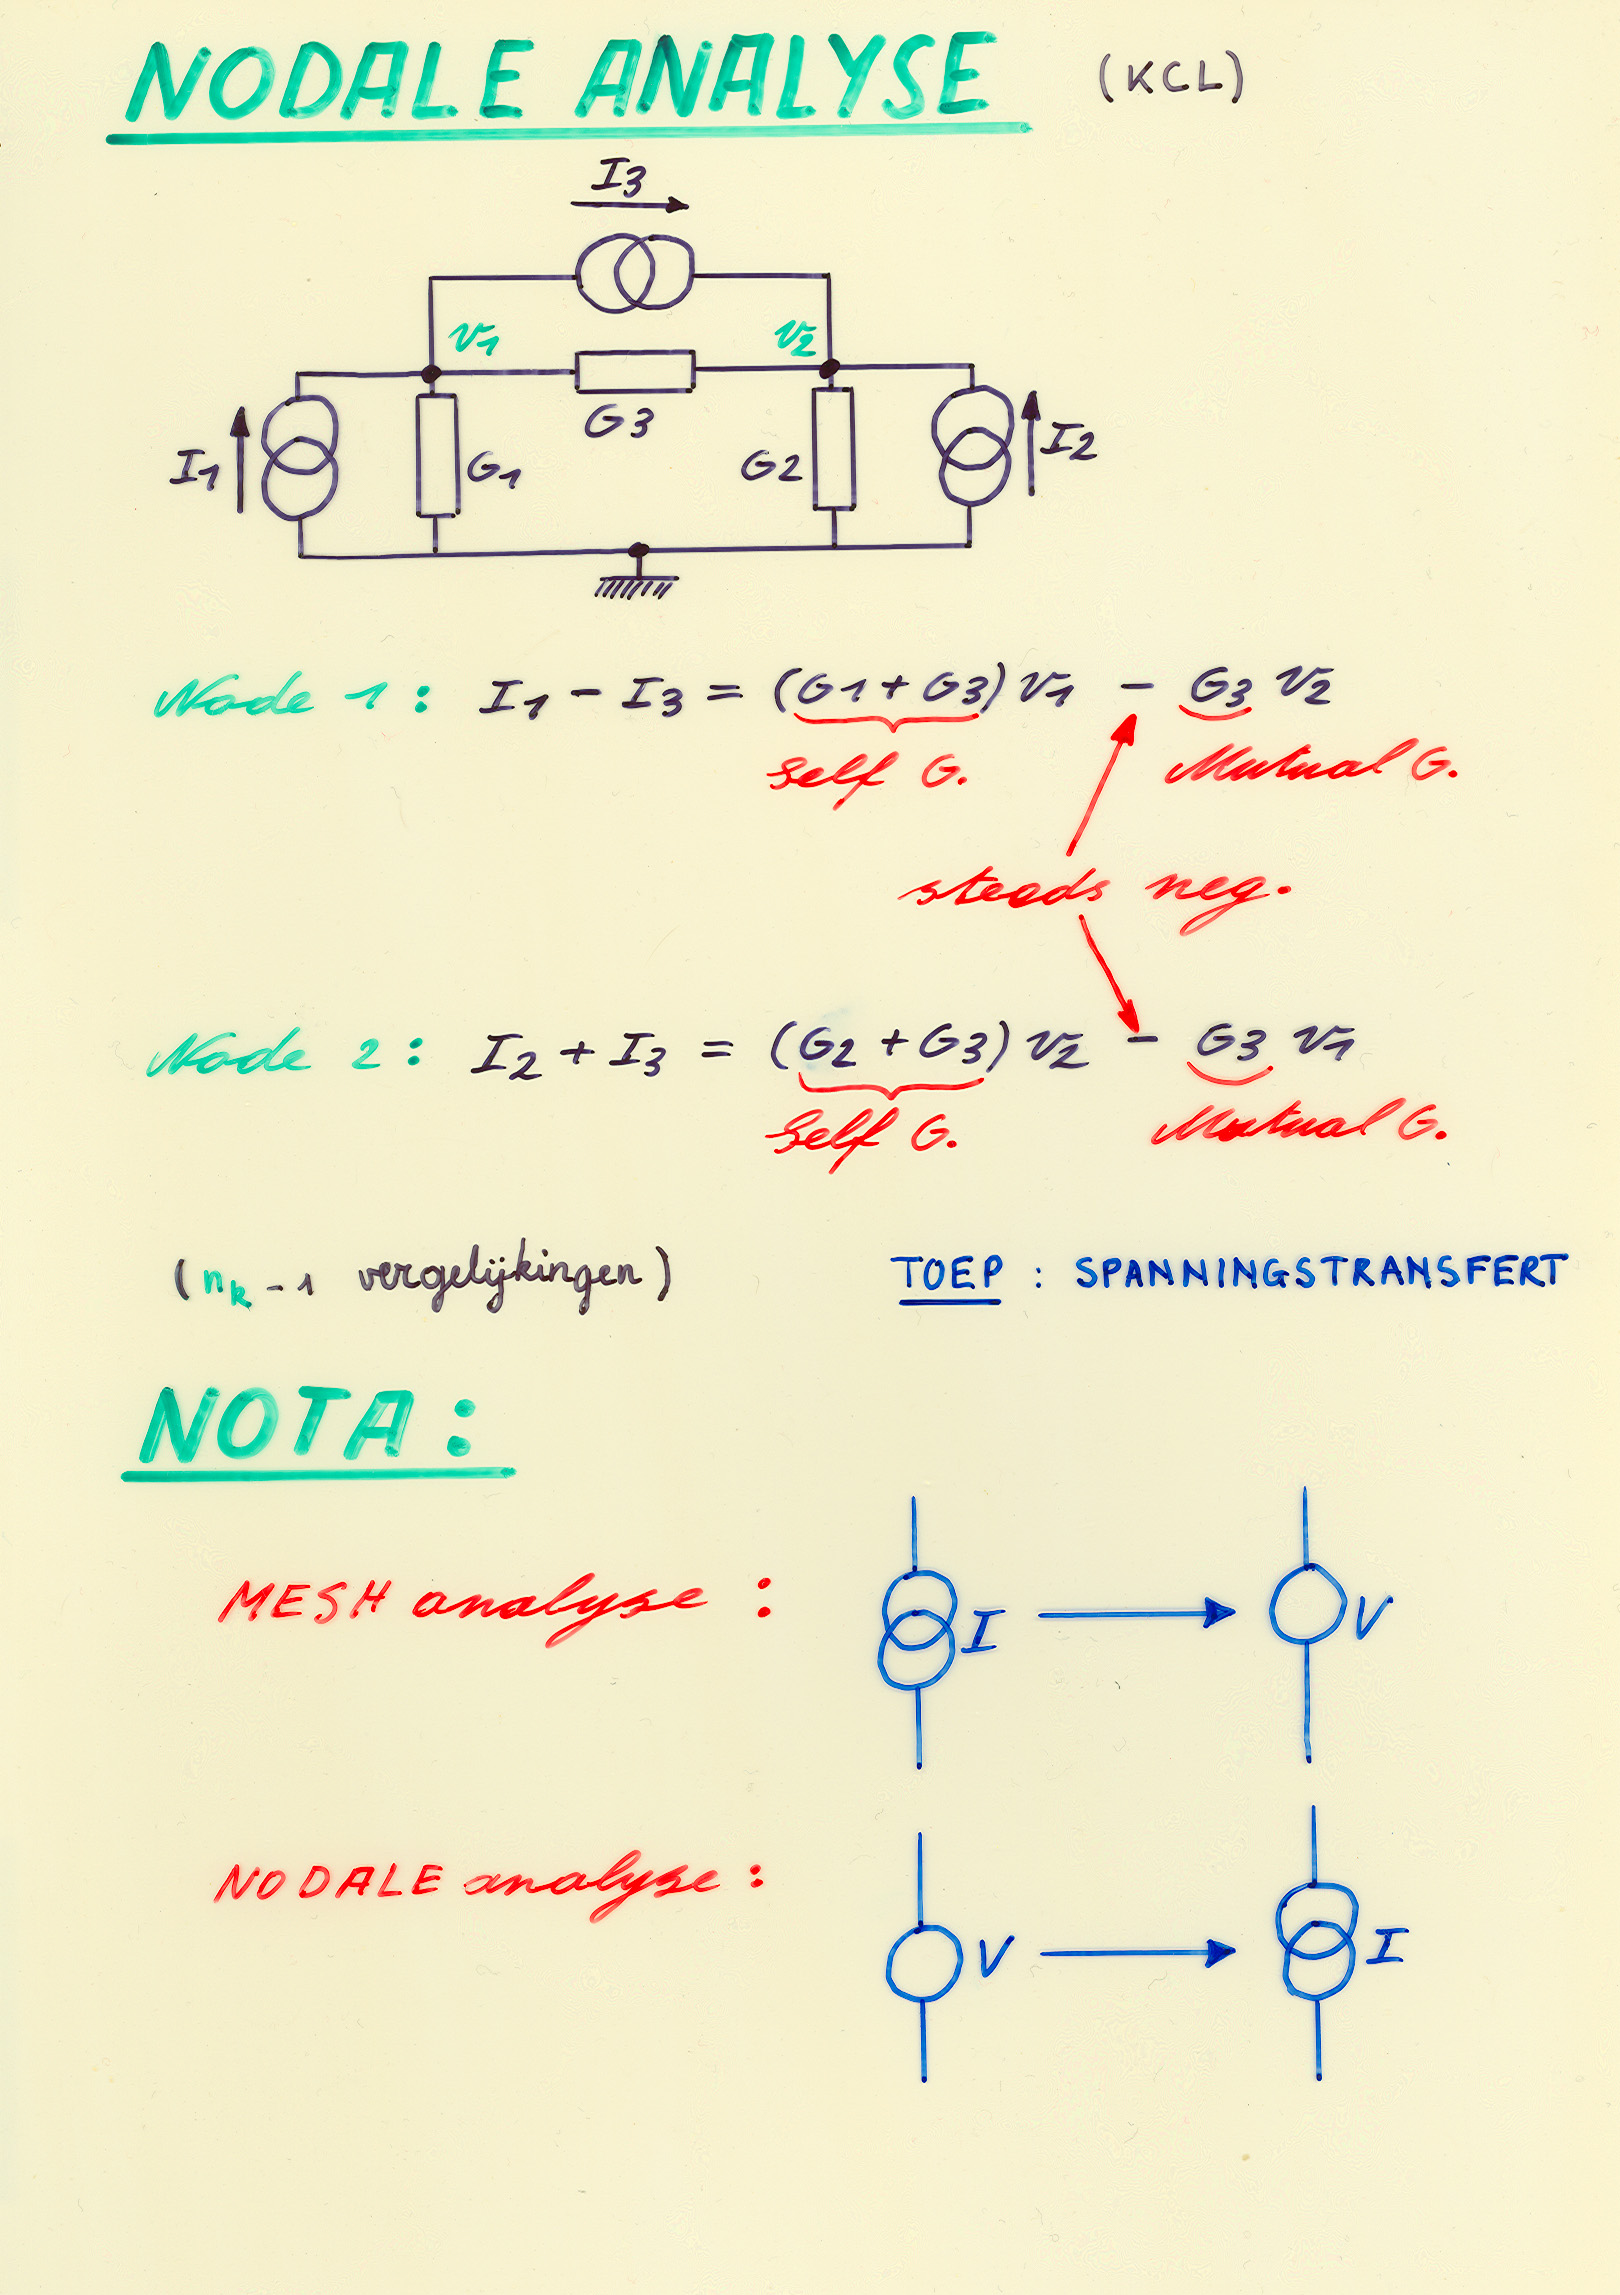 NODALE ANALYSE (KCL)
I3
V1 V2
I1 G1 G3 G2 I2
Node 1 : I1 - I3 = (G1 + G3) V1 - G3 V2
Self G. Mutual G.
steeds neg.
Node 2 : I2 + I3 = (G2 + G3) V2 - G3 V1
Self G. Mutual G.
(nk - 1 vergelijkingen) TOEP : SPANNINGSTRANSFERT
NOTA :
MESH analyse : I V
NODALE analyse : V I